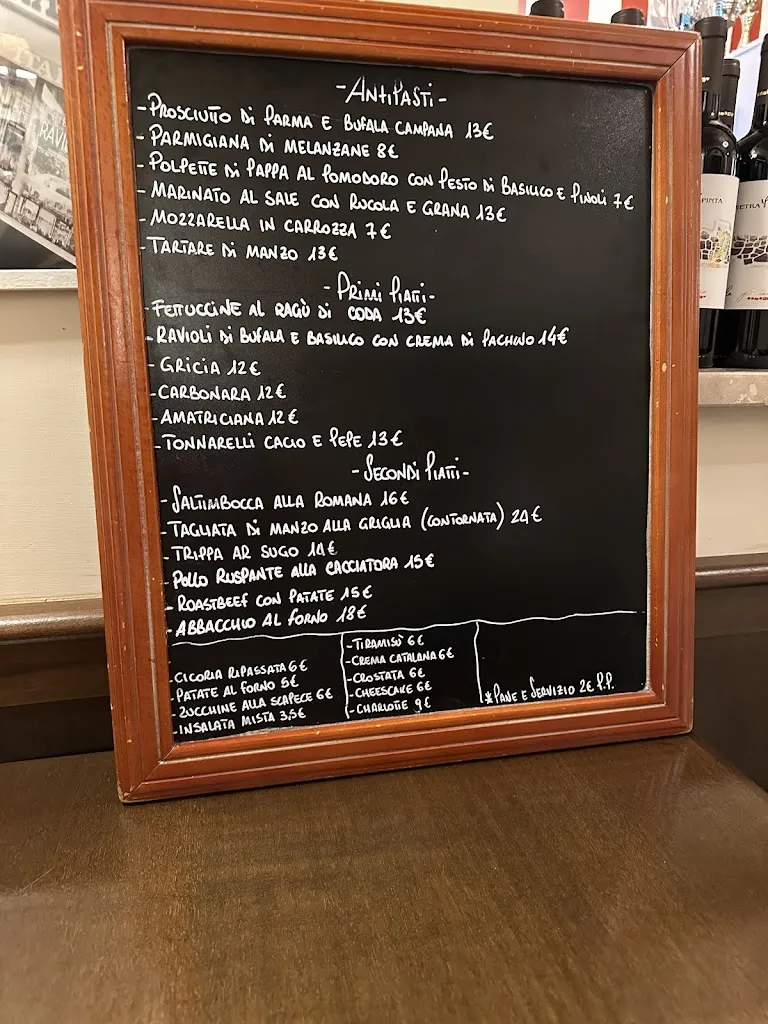 - ANTIPASTI -
- PROSCIUTTO DI PARMA E BUFALA CAMPANA 13€
- PARMIGIANA DI MELANZANE 8€
- POLPETTE DI PAPPA AL POMODORO CON PESTO DI BASILICO E PINOLI 7€
- MARINATO AL SALE CON RUCOLA E GRANA 13€
- MOZZARELLA IN CARROZZA 7€
- TARTARE DI MANZO 13€
- PRIMI PIATTI -
- FETTUCCINE AL RAGÙ DI CODA 13€
- RAVIOLI DI BUFALA E BASILICO CON CREMA DI PACHINO 14€
- GRICIA 12€
- CARBONARA 12€
- AMATRICIANA 12€
- TONNARELLI CACIO E PEPE 13€
- SECONDI PIATTI -
- SALTIMBOCCA ALLA ROMANA 16€
- TAGLIATA DI MANZO ALLA GRIGLIA (CONTORNATA) 24€
- TRIPPA AR SUGO 14€
- POLLO RUSPANTE ALLA CACCIATORA 15€
- ROASTBEEF CON PATATE 15€
- ABBACCHIO AL FORNO 18€
- CICORIA RIPASSATA 6€
- PATATE AL FORNO 5€
- ZUCCHINE ALLA SCAPECE 6€
- INSALATA MISTA 3,5€
- TIRAMISÙ 6€
- CREMA CATALANA 6€
- CROSTATA 6€
- CHEESCAKE 6€
- CHARLOTTE 9€
* PANE E SERVIZIO 2€ P.P.